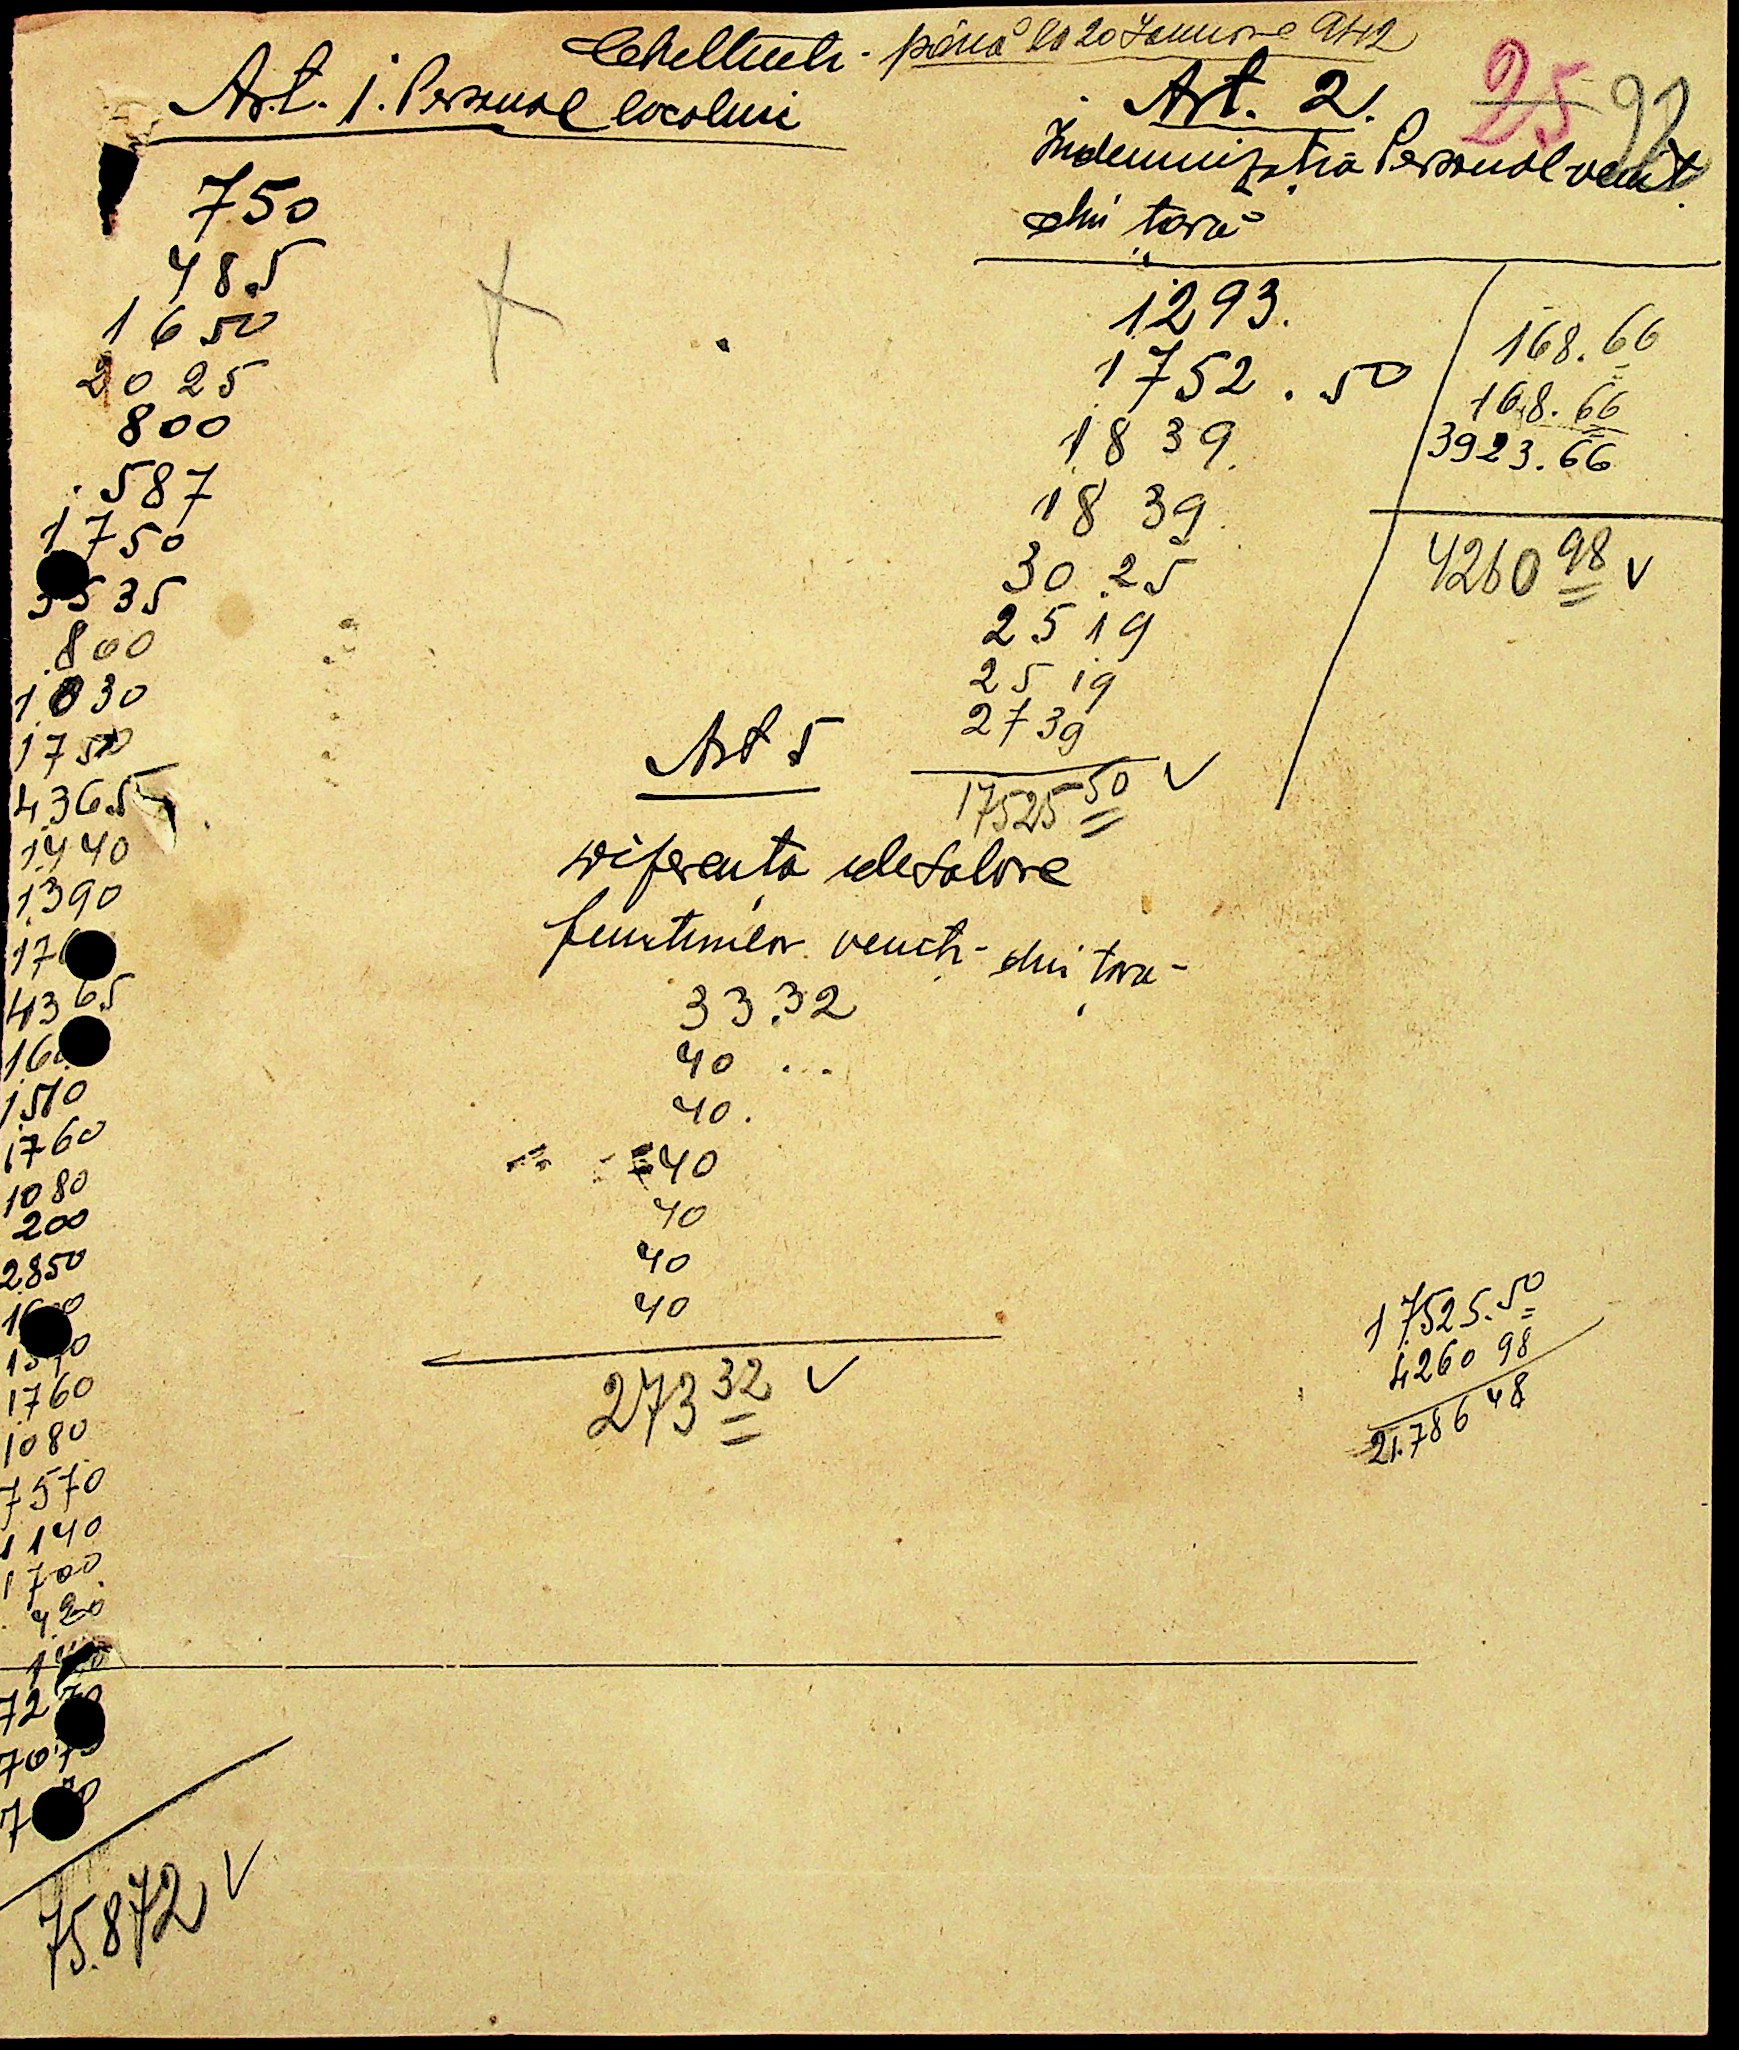 Cheltueli - până la 20 Ianuarie 942
Art. 1. Personal localnic
750
485
1650
2025
800
587
1750
3535
800
1030
1750
4365
1440
1390
4365
1510
1760
1080
200
2850
1760
1080
7570
1140
1700
420
75.872 √
25 92
Art. 2.
Indemnizatia Personal venit
din țară
1293.
1752.50
1839.
1839.
3025
2519
2519
2739
17525 50 √
168.66
168.66
3923.66
4260 98 √
Art 5
Diferenta de salare
venite din țară
33.32
40 ...
40.
40
40
40
40
273 32 √
17525.50
4260 98
21.786 48